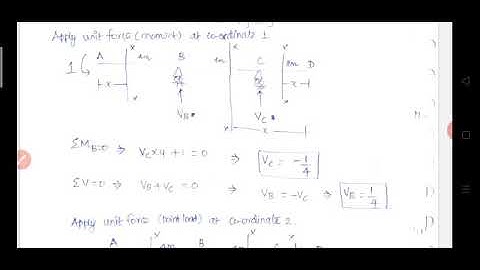 Apply unit force (moment) at co-ordinate 1.
A x 2m B 2m x C x 2m D
1
x x
VB VC
x x
ΣMB=0 ⇒ VC×4 + 1 = 0 ⇒ VC = -1/4
ΣV=0 ⇒ VB+VC = 0 ⇒ VB = -VC ⇒ VB = 1/4
Apply unit force (point load) at co-ordinate 2.
A x 2m B x C x 2m D